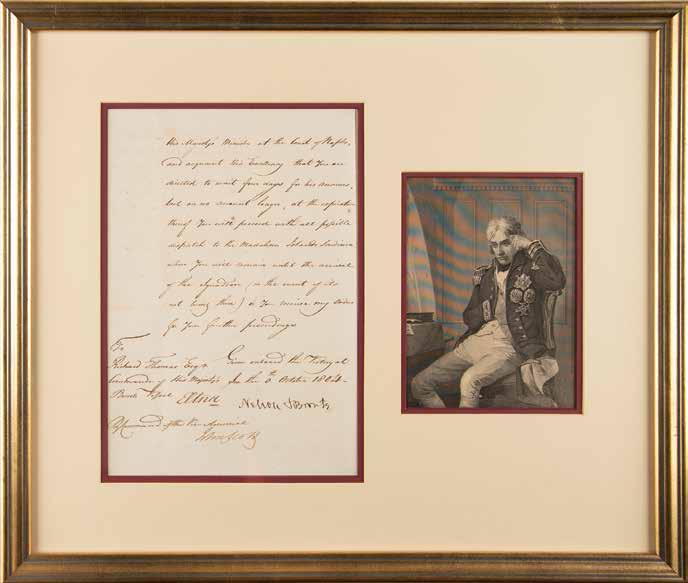 His Majestys Minister at the Court of Naples,
and acquaint His Excellency that You are
directed to wait four days for his answer,
but on no account longer, at the expiration
thereof You will proceed with all possible
dispatch to the Madalena Islands Sardinia
where You will remain until the arrival
of the Squadron (in the event of its
not being there) or You receive my orders
for Your further proceedings
To
Richard Thomas Esqr Given onboard the Victory at
Commander of His Majestys Sea the 6th October 1804
Bomb Vessel Etna Nelson & Bronte
By Command of the Vice Admiral
John Scott